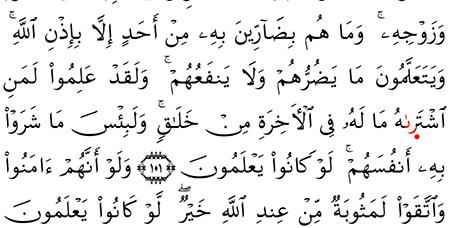 وَزَوۡجِهِۦۚ وَمَا هُم بِضَآرِّينَ بِهِۦ مِنۡ أَحَدٍ إِلَّا بِإِذۡنِ ٱللَّهِۚ
وَيَتَعَلَّمُونَ مَا يَضُرُّهُمۡ وَلَا يَنفَعُهُمۡۚ وَلَقَدۡ عَلِمُواْ لَمَنِ
ٱشۡتَرىٰهُ مَا لَهُۥ فِي ٱلۡأٓخِرَةِ مِنۡ خَلَٰقٖۚ وَلَبِئۡسَ مَا شَرَوۡاْ
بِهِۦٓ أَنفُسَهُمۡۚ لَوۡ كَانُواْ يَعۡلَمُونَ ١٠١ وَلَوۡ أَنَّهُمۡ ءَامَنُواْ
وَٱتَّقَوۡاْ لَمَثُوبَةٞ مِّنۡ عِندِ ٱللَّهِ خَيۡرٞۖ لَّوۡ كَانُواْ يَعۡلَمُونَ